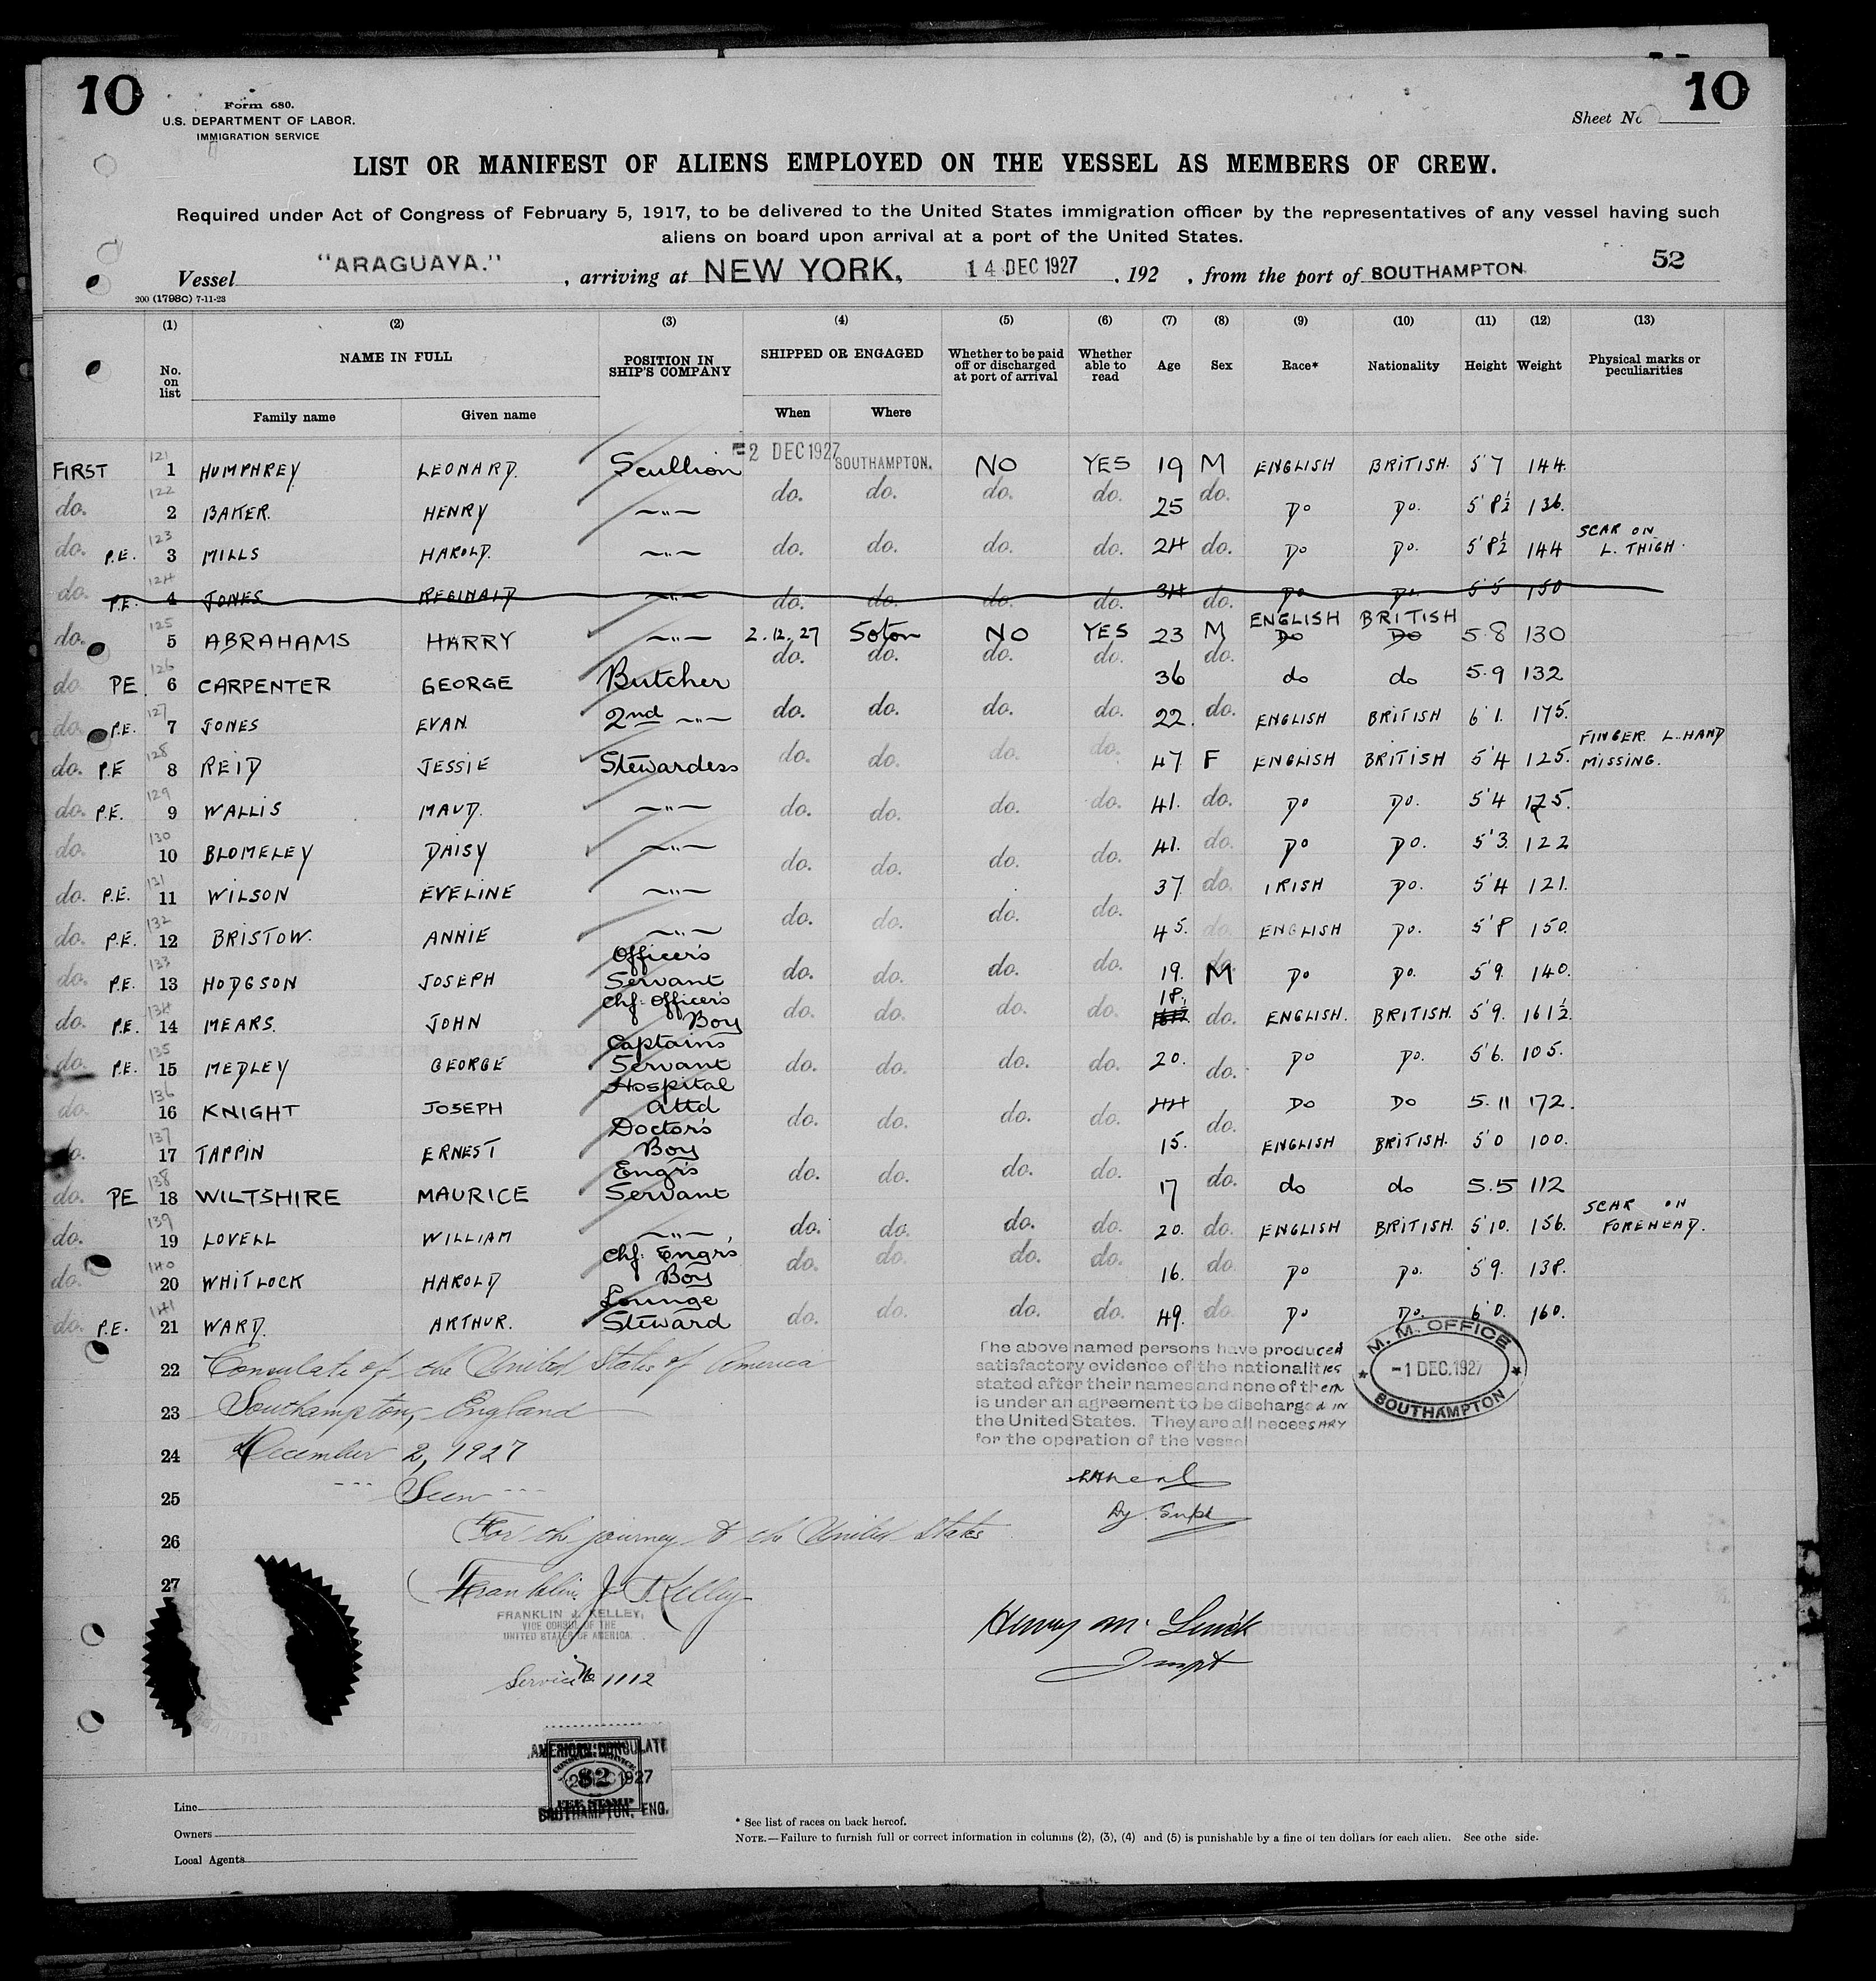 10
Form 680.
U.S. DEPARTMENT OF LABOR.
IMMIGRATION SERVICE
10
Sheet No
LIST OR MANIFEST OF ALIENS EMPLOYED ON THE VESSEL AS MEMBERS OF CREW.
Required under Act of Congress of February 5, 1917, to be delivered to the United States immigration officer by the representatives of any vessel having such
aliens on board upon arrival at a port of the United States.
Vessel "ARAGUAYA." , arriving at NEW YORK, 14 DEC 1927 , 192 , from the port of SOUTHAMPTON 52
200 (1798c) 7-11-23
(1) (2) (3) (4) (5) (6) (7) (8) (9) (10) (11) (12) (13)
No. on list NAME IN FULL POSITION IN SHIP'S COMPANY SHIPPED OR ENGAGED Whether to be paid off or discharged at port of arrival Whether able to read Age Sex Race* Nationality Height Weight Physical marks or peculiarities
Family name Given name When Where
FIRST 121 1 HUMPHREY LEONARD. Scullion =2 DEC 1927 SOUTHAMPTON. NO YES 19 M ENGLISH BRITISH. 5'7 144.
do. 122 2 BAKER. HENRY —"— do. do. do. do. 25 do. Do Do. 5'8½ 136.
do. P.E. 123 3 MILLS HAROLD. —"— do. do. do. do. 24 do. Do Do. 5'8½ 144 SCAR ON L. THIGH.
do. P.E. 124 4 JONES REGINALD —"— do. do. do. do. 34 do. Do Do. 5'5 150
do. 125 5 ABRAHAMS HARRY —"— 2.12.27 Soton NO YES 23 M ENGLISH Do BRITISH Do 5.8 130
do PE. 126 6 CARPENTER GEORGE Butcher do. do. do. do. 36 do. do do 5.9 132
do P.E. 127 7 JONES EVAN. 2nd —"— do. do. do. do. 22. do. ENGLISH BRITISH 6'1. 175.
do. P.E 128 8 REID JESSIE Stewardess do. do. do. do. 47 F ENGLISH BRITISH 5'4 125. FINGER L.HAND MISSING.
do. P.E. 129 9 WALLIS MAUD. —"— do. do. do. do. 41. do. Do Do. 5'4 125.
do. 130 10 BLOMELEY DAISY —"— do. do. do. do. 41. do. Do Do. 5'3. 122
do. P.E. 131 11 WILSON EVELINE —"— do. do. do. do. 37 do. IRISH Do. 5'4 121.
do. P.E. 132 12 BRISTOW. ANNIE —"— do. do. do. do. 45. do. ENGLISH Do. 5'8 150.
do. P.E. 133 13 HODGSON JOSEPH Officer's Servant do. do. do. do. 19. M Do Do. 5'9. 140.
do. P.E. 134 14 MEARS. JOHN Chf. Officer's Boy do. do. do. do. 18. do. ENGLISH. BRITISH. 5'9. 161½.
do. P.E. 135 15 MEDLEY GEORGE Captain's Servant do. do. do. do. 20. do. Do Do. 5'6. 105.
do. 136 16 KNIGHT JOSEPH Hospital attd do. do. do. do. 44 do. Do Do 5.11 172.
do. 137 17 TAPPIN ERNEST Doctor's Boy do. do. do. do. 15. ENGLISH BRITISH. 5'0 100.
do. PE 138 18 WILTSHIRE MAURICE Engr's Servant do. do. do. do. 17 do. do do 5.5 112
do. 139 19 LOVELL WILLIAM —"— do. do. do. do. 20. do. ENGLISH BRITISH. 5'10. 156. SCAR ON FOREHEAD.
do. 140 20 WHITLOCK HAROLD Chf. Engr's Boy do. do. do. do. 16. do Do Do. 5'9. 138.
do. P.E. 141 21 WARD. ARTHUR. Lounge Steward do. do. do. do. 49. do. Do Do. 6'0. 160.
22 Consulate of the United States of America
23 Southampton, England
24 December 2, 1927
25 --- Seen ---
26 For the journey to the United States
27 Franklin J. Kelley
FRANKLIN J. KELLEY,
VICE CONSUL OF THE
UNITED STATES OF AMERICA.
Service No. 1112
The above named persons have produced
satisfactory evidence of the nationalities
stated after their names and none of them
is under an agreement to be discharged IN
the United States. They are all necessARY
for the operation of the vessel
M. M. OFFICE
-1 DEC.1927
SOUTHAMPTON
Dy. Supt
Henry M.
AMERICAN CONSULATE
CONSULAR SERVICE
$2
2 DEC 1927
FEE STAMP
SOUTHAMPTON, ENG.
Line
Owners
Local Agents
* See list of races on back hereof.
NOTE.—Failure to furnish full or correct information in columns (2), (3), (4) and (5) is punishable by a fine of ten dollars for each alien. See othe side.